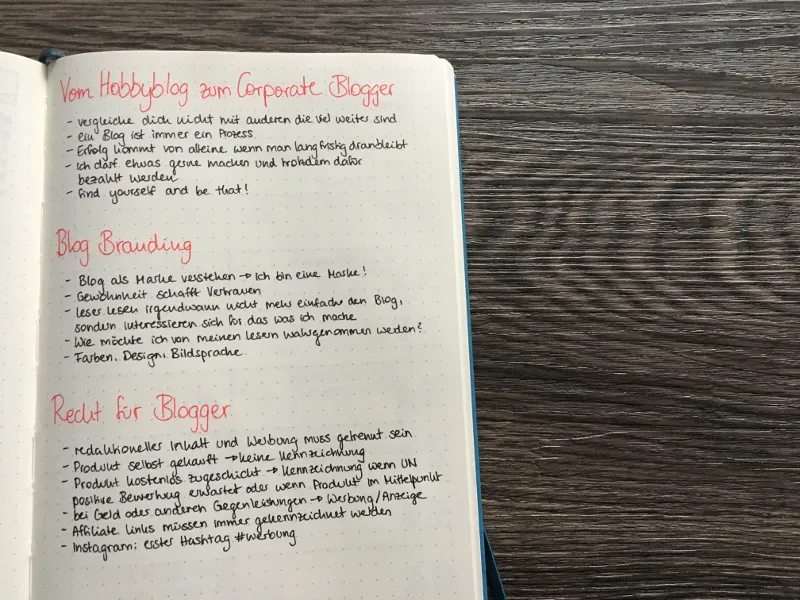 Vom Hobbyblog zum Corporate Blogger
- vergleiche dich nicht mit anderen die viel weiter sind
- ein Blog ist immer ein Prozess
- Erfolg kommt von alleine wenn man langfristig dranbleibt
- Ich darf etwas gerne machen und trotzdem dafür
bezahlt werden
- find yourself and be that!
Blog Branding
- Blog als Marke verstehen → Ich bin eine Marke!
- Gewohnheit schafft Vertrauen
- Leser lesen irgendwann nicht mehr einfach den Blog,
sondern interessieren sich für das was ich mache
- Wie möchte ich von meinen Lesern wahrgenommen werden?
- Farben, Design, Bildsprache
Recht für Blogger
- redaktioneller Inhalt und Werbung muss getrennt sein
- Produkt selbst gekauft → keine Kennzeichnung
- Produkt kostenlos zugeschickt → Kennzeichnung wenn UN
positive Bewerbung erwartet oder wenn Produkt im Mittelpunkt
- bei Geld oder anderen Gegenleistungen → Werbung/Anzeige
- Affiliate Links müssen immer gekennzeichnet werden
- Instagram: erster Hashtag #werbung